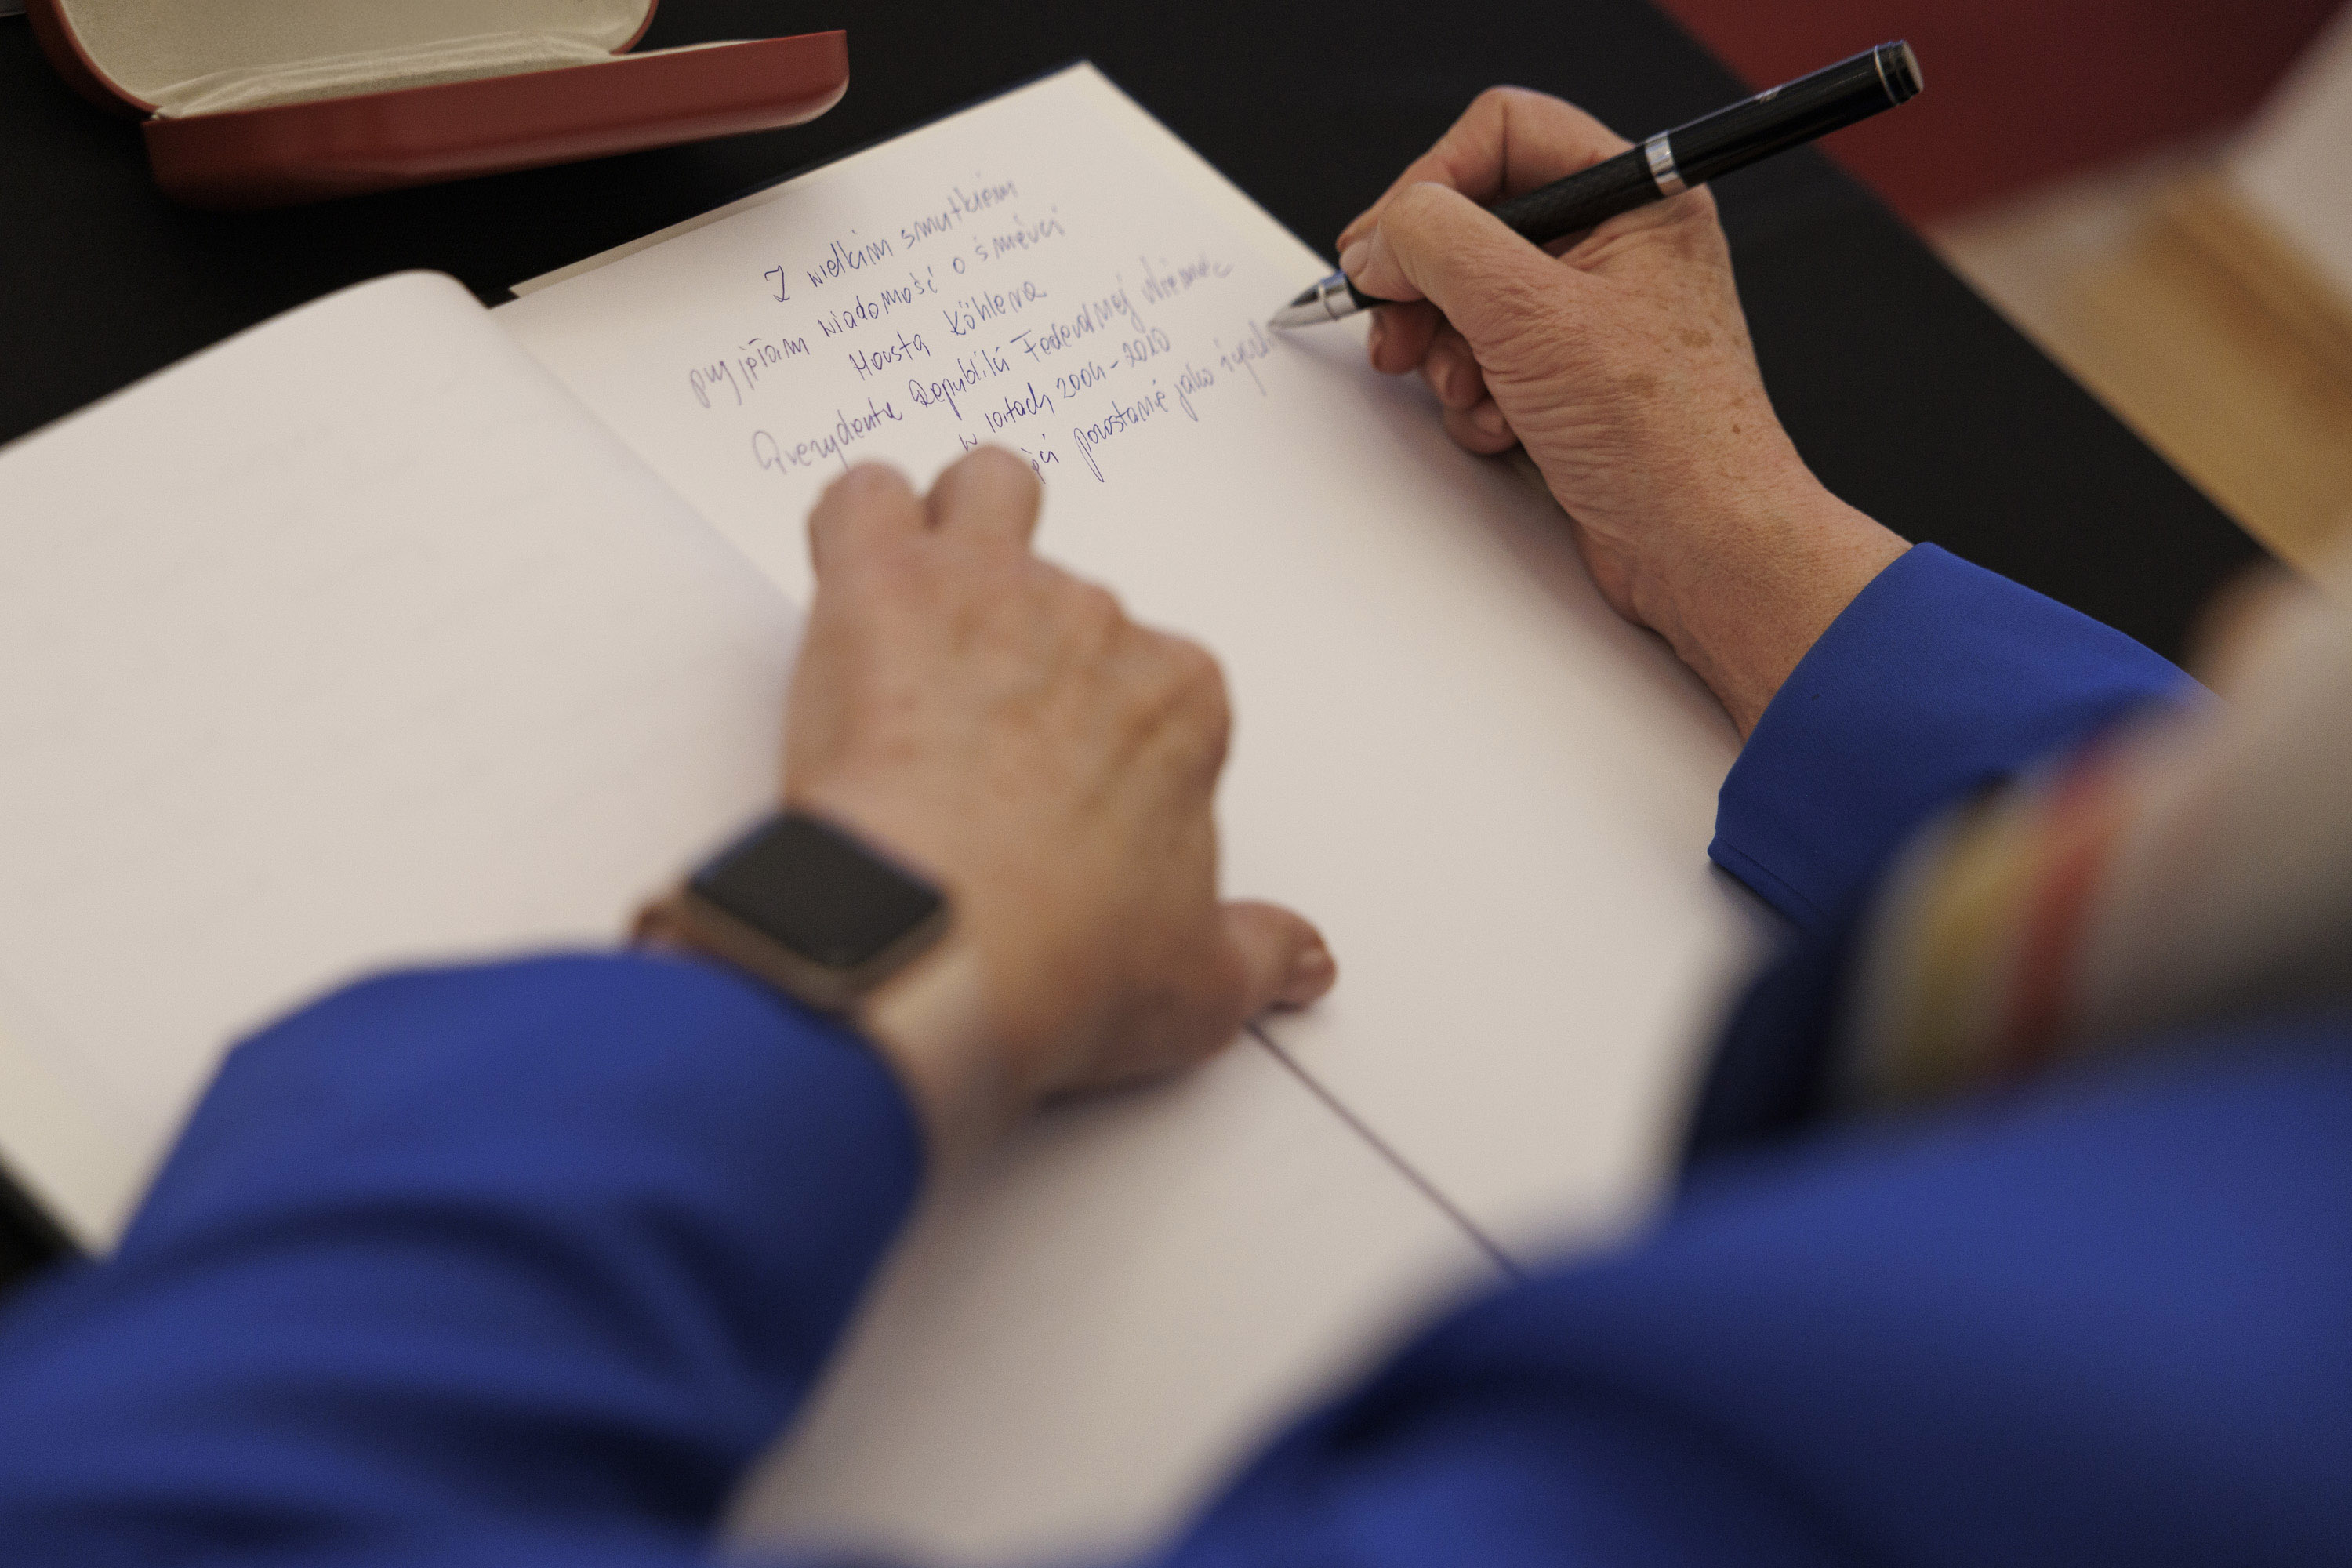 Z wielkim smutkiem
przyjęłam wiadomość o śmierci
Horsta Köhlera
Prezydenta Republiki Federalnej Niemiec
w latach 2004-2010
pozostanie jako